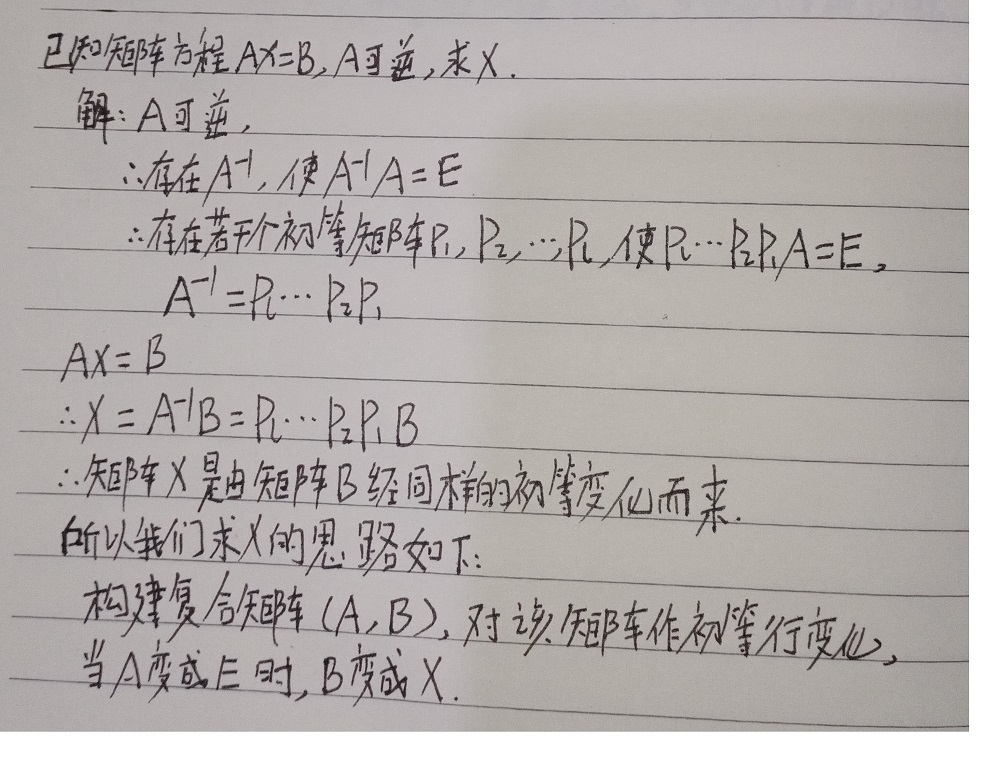 已知矩阵方程AX=B,A可逆,求X.
解:A可逆,
∴存在A⁻¹,使A⁻¹A=E
∴存在若干个初等矩阵P₁,P₂,…,Pₗ,使Pₗ…P₂P₁A=E,
A⁻¹=Pₗ…P₂P₁
AX=B
∴X=A⁻¹B=Pₗ…P₂P₁B
∴矩阵X是由矩阵B经同样的初等变化而来.
所以我们求X的思路如下:
构建复合矩阵(A,B),对该矩阵作初等行变化,
当A变成E时,B变成X.